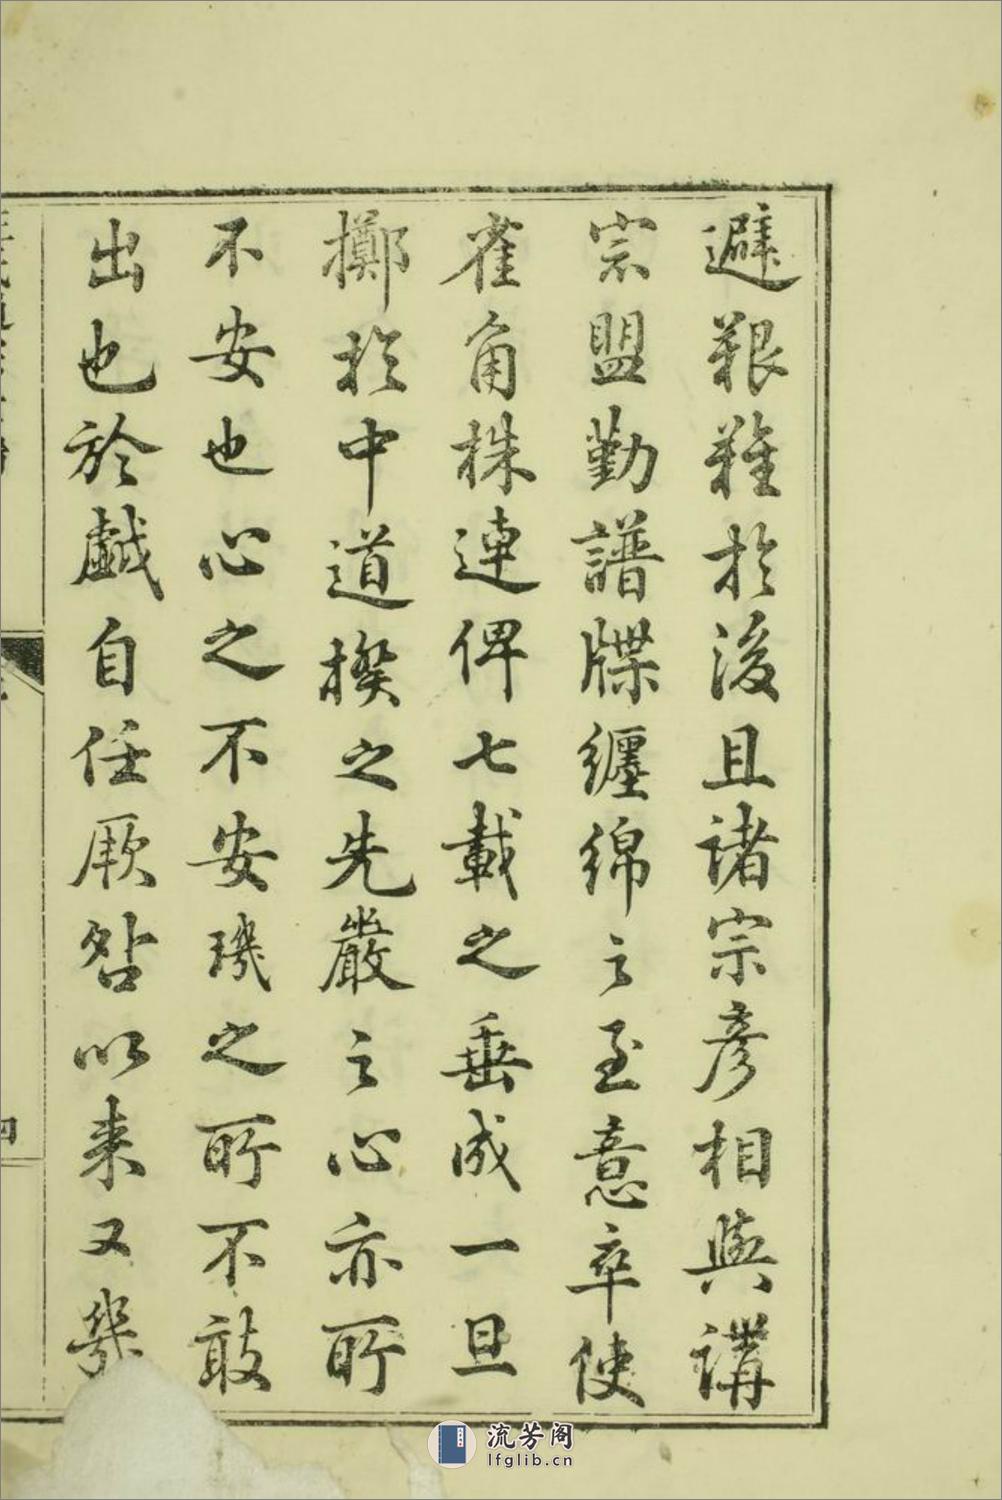 避艱難於後且諸宗彥相與講
宗盟勤譜牒纏綿之至意卒使
雀角株連俾七載之垂成一旦
擲於中道揆之先嚴之心亦所
不安也心之不安璣之所不敢
出也於戲自任厥咎以来又幾
四
流芳阁
lfglib.cn